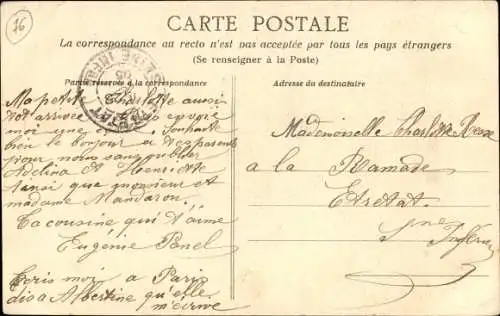 76
CARTE POSTALE
La correspondance au recto n'est pas acceptée par tous les pays étrangers
(Se renseigner à la Poste)
Partie réservée à la correspondance
Adresse du destinataire
ETRETAT
05
Ma petite Charlotte aussi
arrivée
moi une
bien le bonjour a tes parents
pour nous sans oublier
Adelina et Henriette
ainsi que monsieur et
madame Mandaron.
Ta cousine qui t'aime
Eugénie Panel
Ecris moi a Paris
dis a Albertine qu'elle
m'ecrive
Mademoiselle Charlotte
a la Ramade
Etretat.
Sne Infere